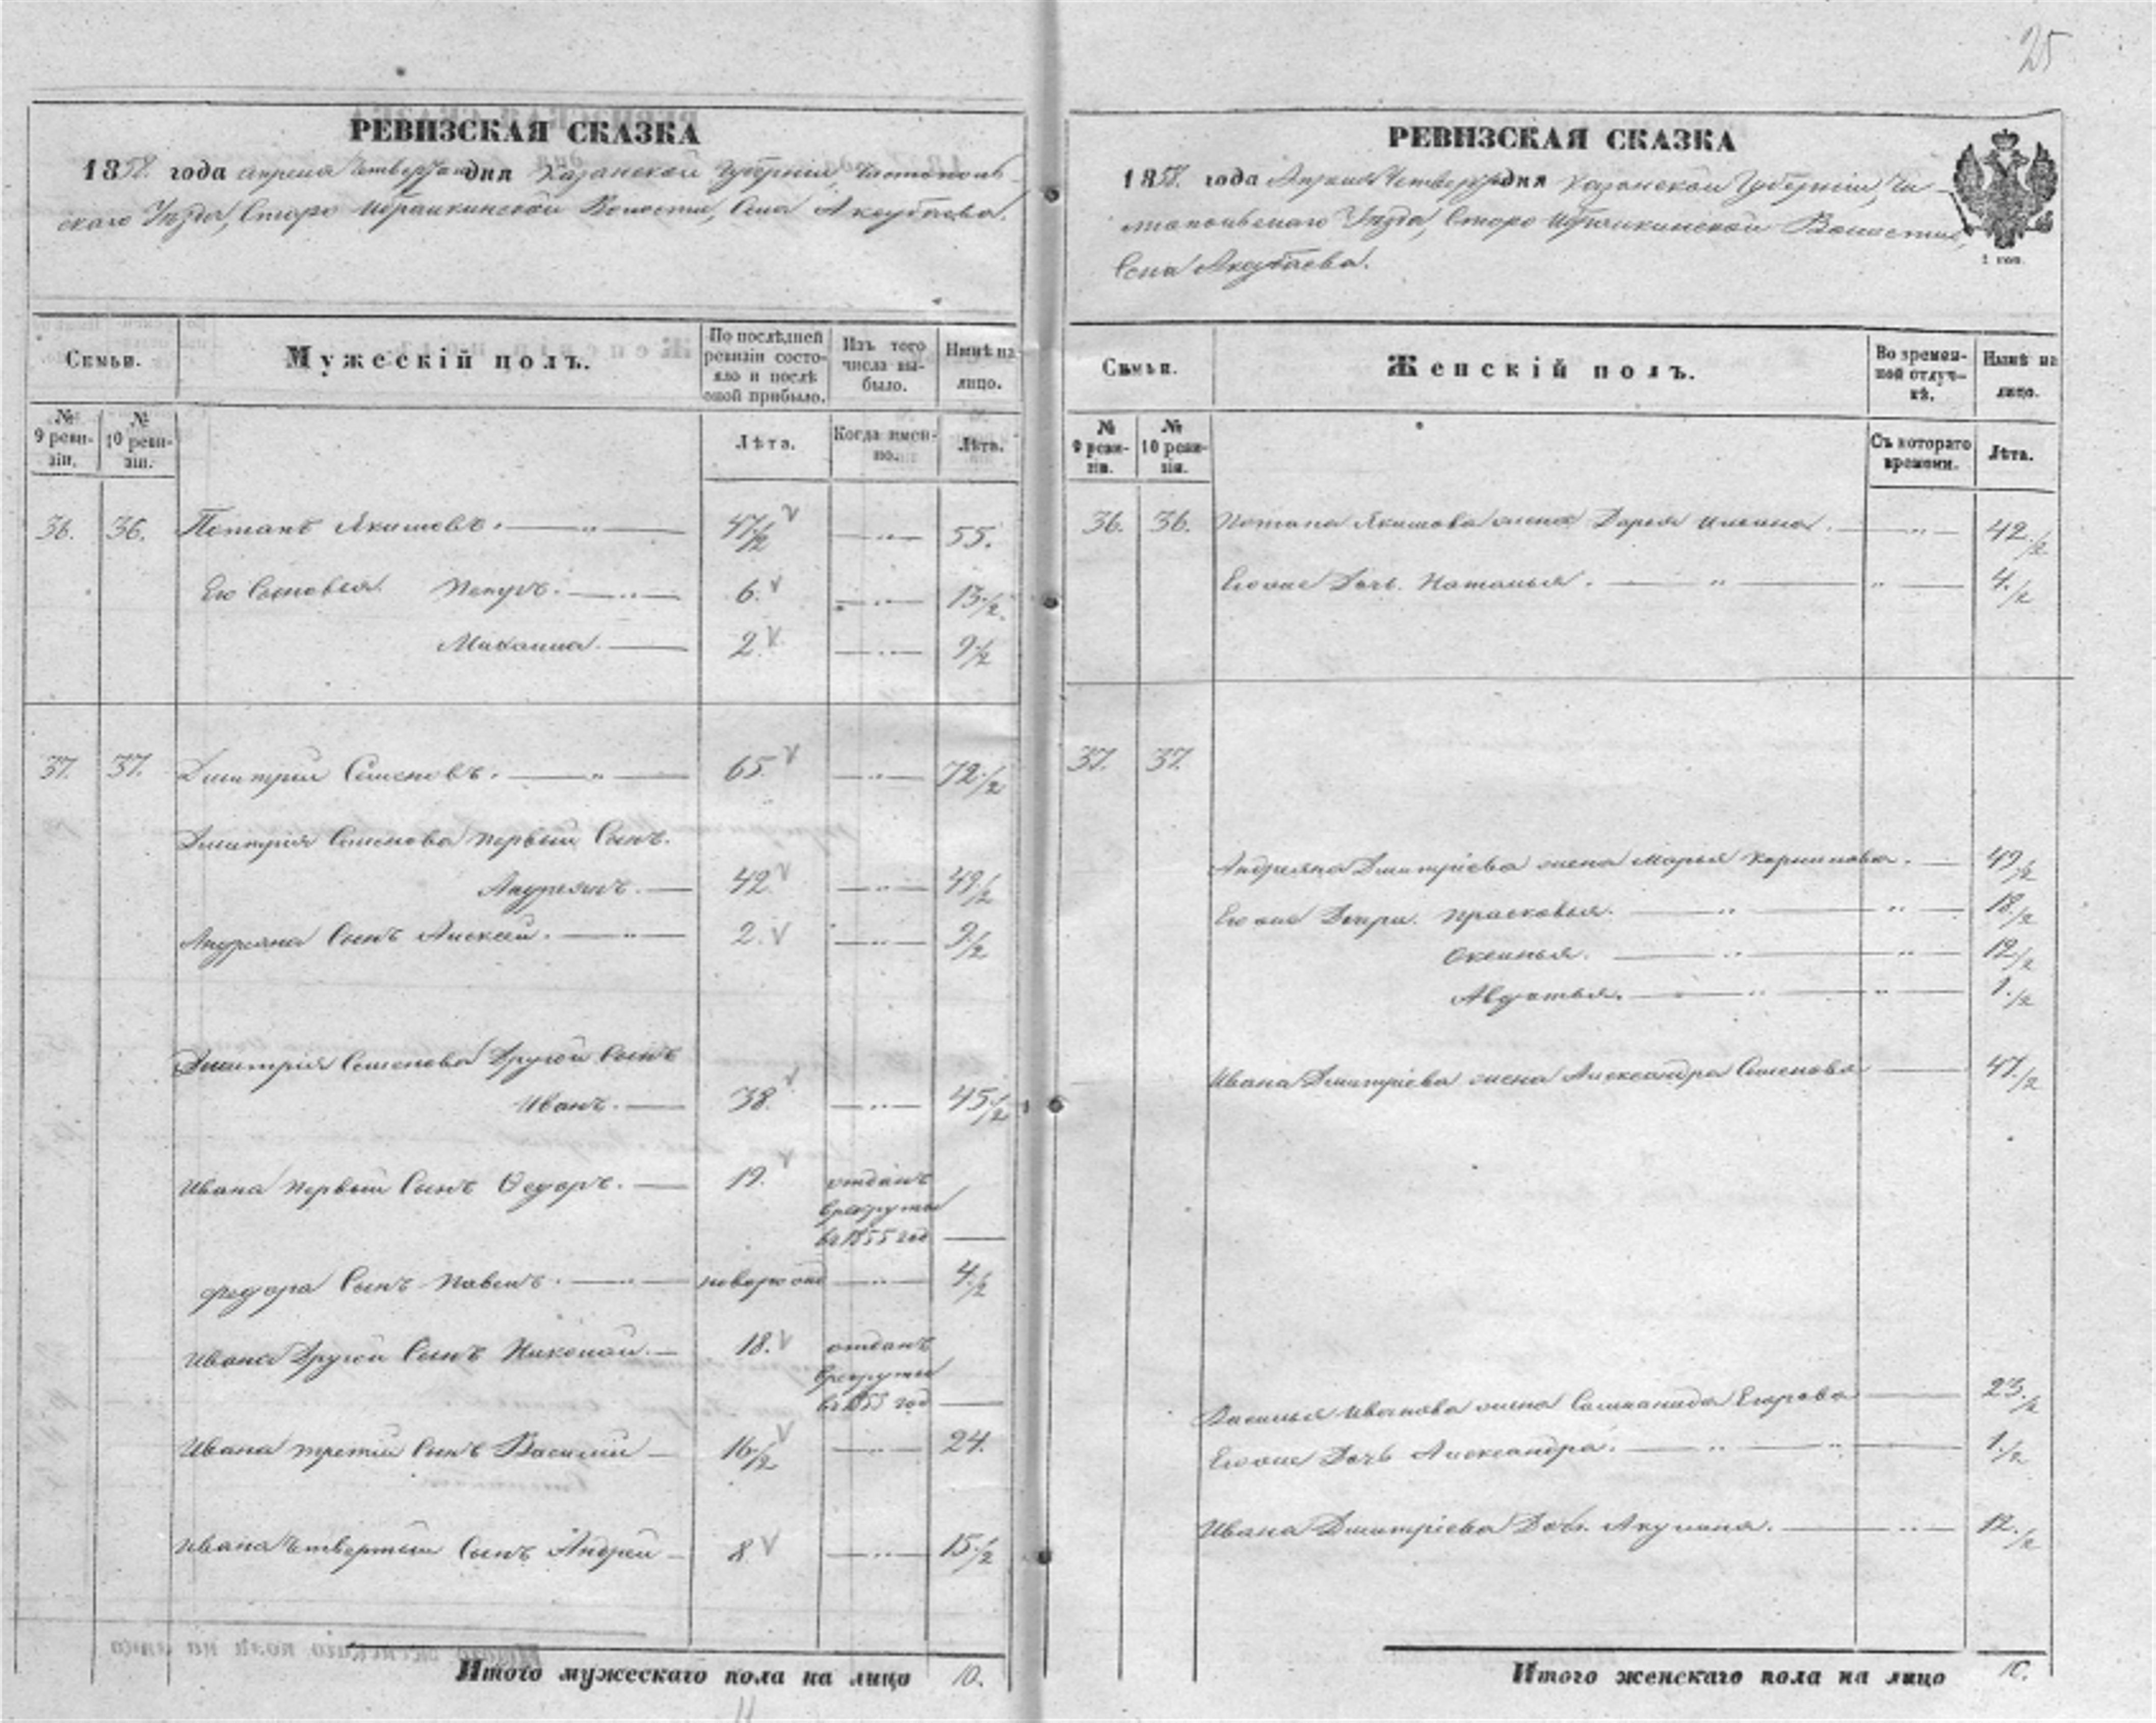 25
РЕВИЗСКАЯ СКАЗКА
1858. года апреля четвертаго дня Казанской Губерніи, Чистополь-
скаго Уѣзда, Старо Ибрайкинской Волости, Села Аксубаева.
Семьи.
Мужескій полъ.
По послѣдней ревизіи состояло и послѣ оной прибыло.
Изъ того числа выбыло.
Нынѣ на лицо.
№ 9 ревизіи.
№ 10 ревизіи.
Лѣта.
Когда именно.
Лѣта.
36. 36. Потапъ Якимовъ. 47 1/2 55.
Его Сыновья 6. 13 1/2.
Михаила. 2. 9 1/2
37. 37. Дмитрій Семеновъ. 65. 72 1/2
Дмитрія Семенова первый Сынъ.
Андреянъ. 42 49 1/2
Андреяна Сынъ Алексей. 2. 9 1/2
Дмитрія Семенова другой Сынъ
Иванъ. 38. 45 1/2
Ивана первый Сынъ Ѳедоръ. 19. отданъ
в рекруты
в 1855 год
Федора Сынъ Павелъ. новорожд 4 1/2
Ивана другой Сынъ Николай. 18. отданъ
в рекруты
в 1853 год
Ивана третій Сынъ Василий 16 1/2 24.
Ивана четвертый Сынъ Андрей 8 15 1/2
Итого мужескаго пола на лицо 10.
РЕВИЗСКАЯ СКАЗКА
1858. года Апреля Четвертаго дня Казанской Губерніи, Чи-
стопольскаго Уѣзда, Старо Ибрайкинской Волости,
Села Аксубаева.
Семьи.
Женскій полъ.
Во временной отлучкѣ.
Нынѣ на лицо.
№ 9 ревизіи.
№ 10 ревизіи.
Съ котораго времени.
Лѣта.
36. 36. Потапа Якимова жена Дарья 42 1/2
Его же Дочь Наталья. 4 1/2
37. 37.
Андреяна Дмитріева жена Марья Корнилова. 49 1/2
Его же Дочери Прасковья. 18 1/2
Оксинья. 12 1/2
Авдотья. 1 1/2
Ивана Дмитріева жена Александра Семенова 47 1/2
Василья Иванова жена Саломанида Егорова 23 1/2
Его же Дочь Александра. 1 1/2
Ивана Дмитріева Дочь Акулина. 12 1/2
Итого женскаго пола на лицо 10.